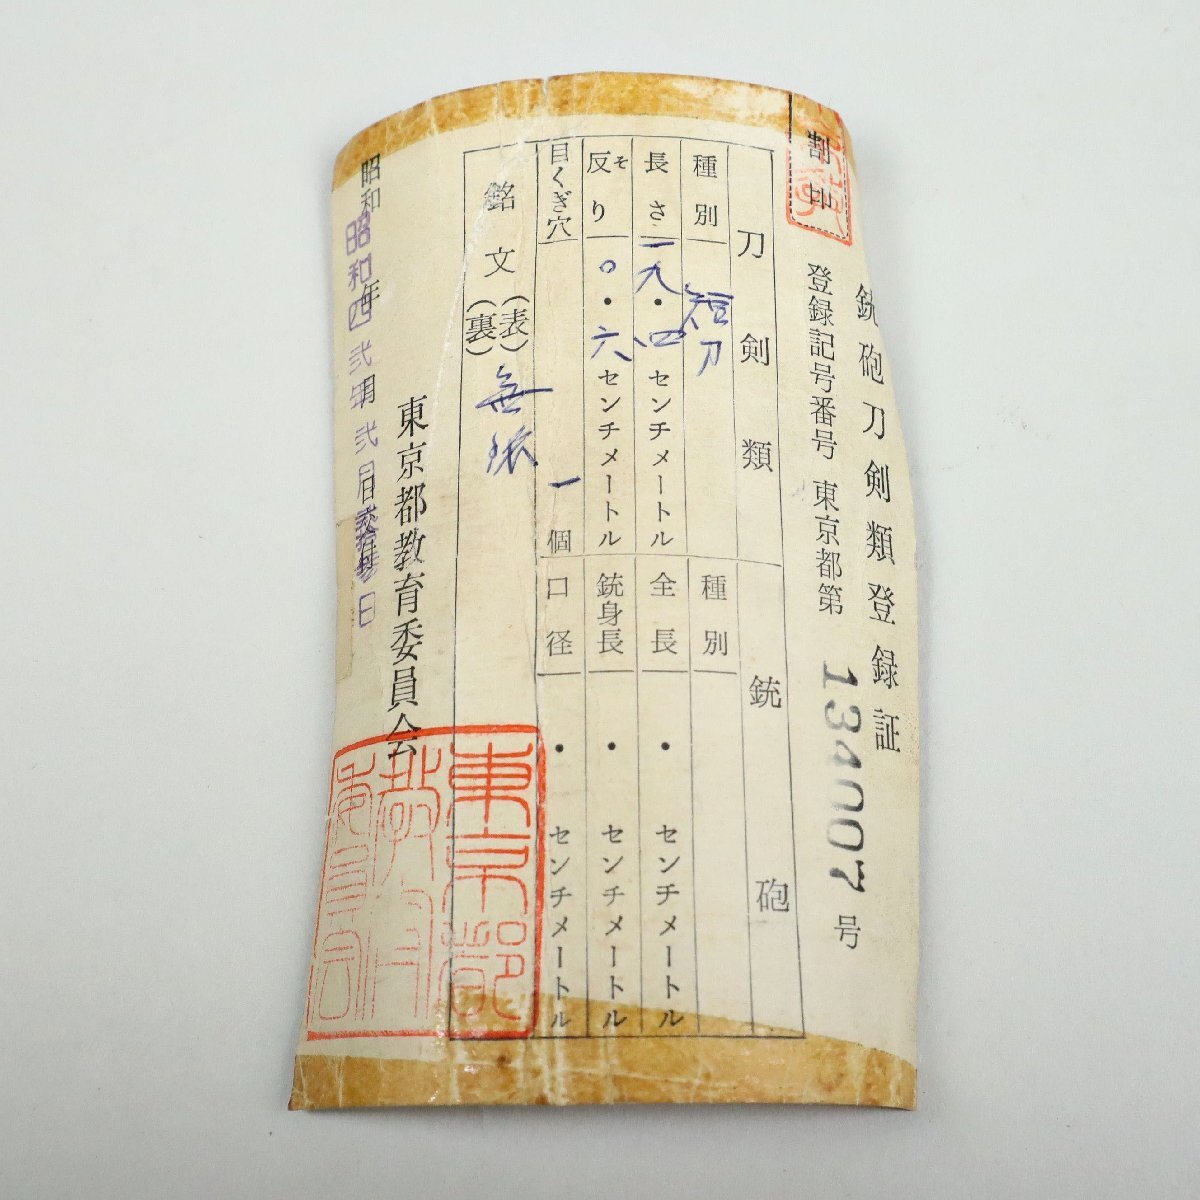 割印
銃砲刀剣類登録証
登録記号番号 東京都第 134007 号
刀剣類
銃砲
種別 短刀
種別
長さ 一九・四 センチメートル
全長 ・ センチメートル
反り そ 〇・六 センチメートル
銃身長 ・ センチメートル
目くぎ穴 一 個
口径 ・ センチメートル
銘文 (表) 無銘
(裏)
東京都教育委員会
昭和 年 月 日
昭和四弐年弐月 日
東京都
教育
委員会